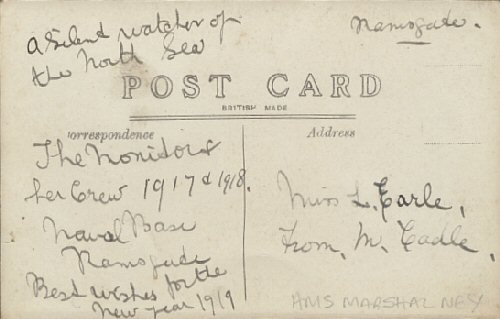 A Silent watcher of
the North Sea
Ramsgate.
POST CARD
BRITISH MADE
Correspondence
Address
The Monitor &
her Crew 1917 & 1918.
Naval Base
Ramsgate
Best wishes for the
New year 1919
Miss L. Earle,
From, M. Cadle,
HMS MARSHAL NEY